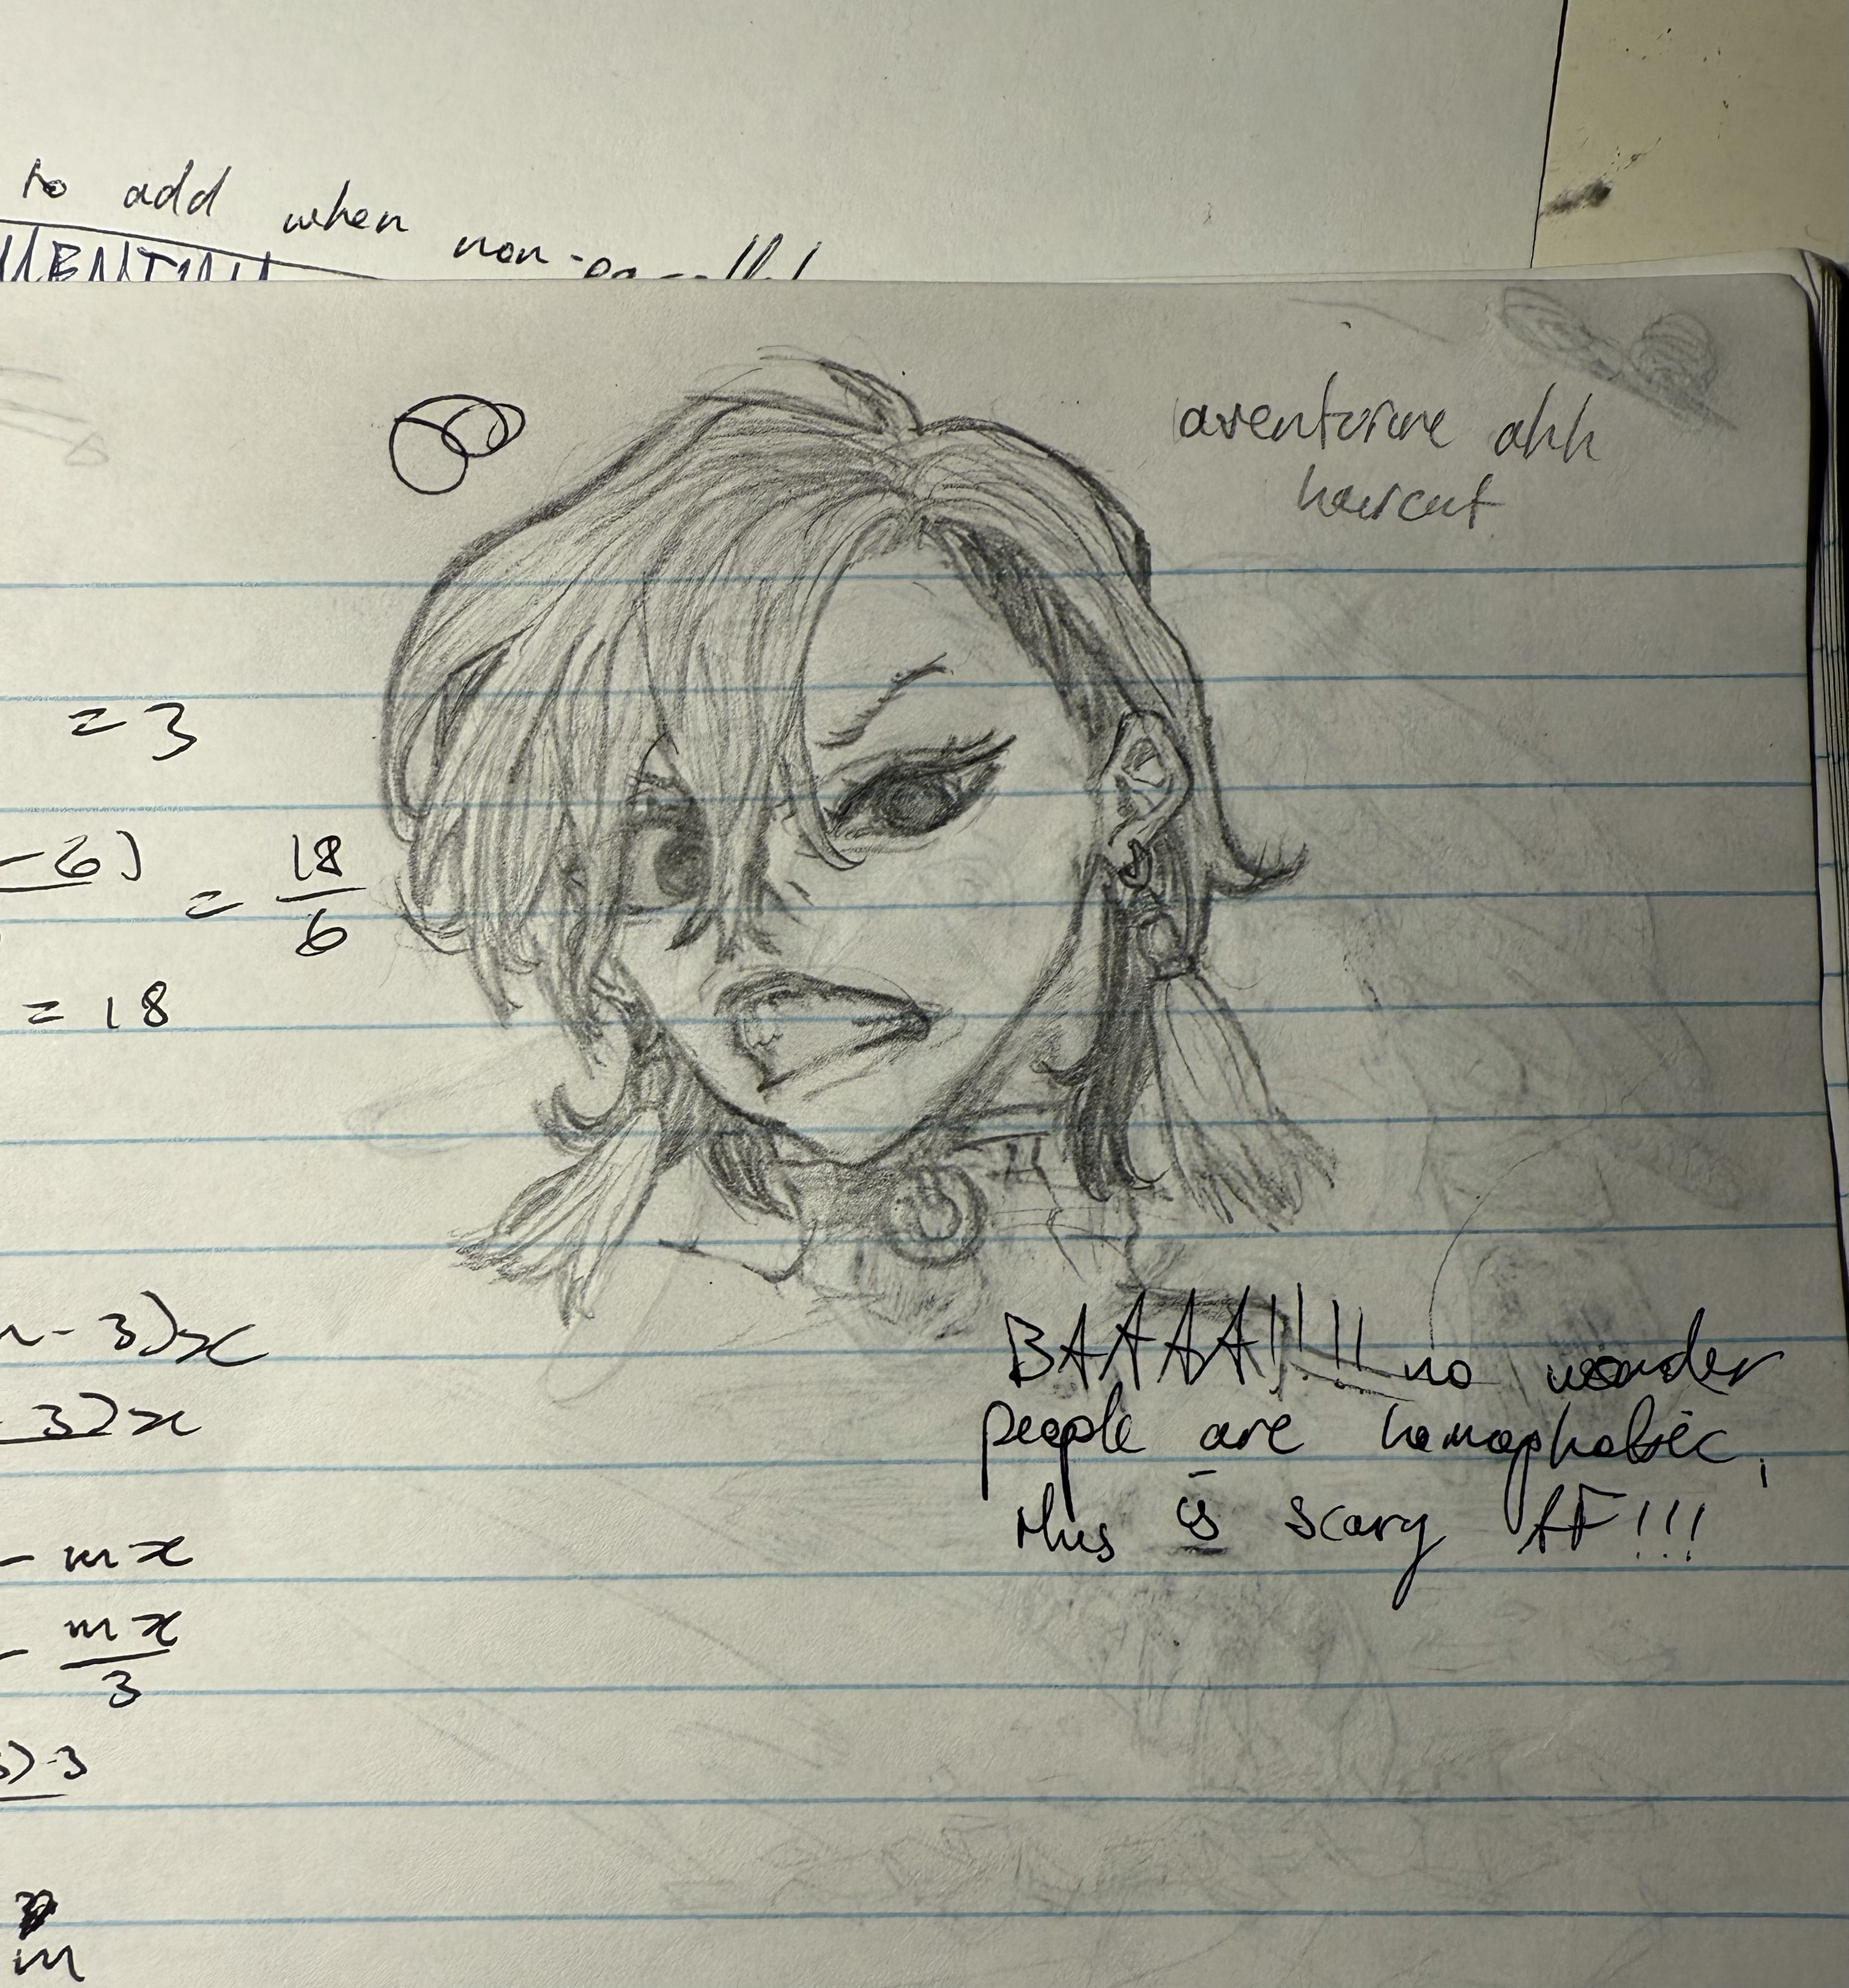 to add when non-parallel
aventurine ahh
haircut
= 3
-6) = 18
6
= 18
BAAAA!!!!! no wonder
people are homophobic,
this is scary AF!!!
- 3)x
3)x
- mx
mx
3
m